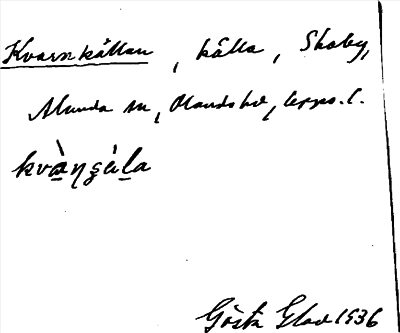 Kvarnkällan, källa, Skoby,
Alunda sn, Olands hd, Upps. l.
Gösta Glad 1936